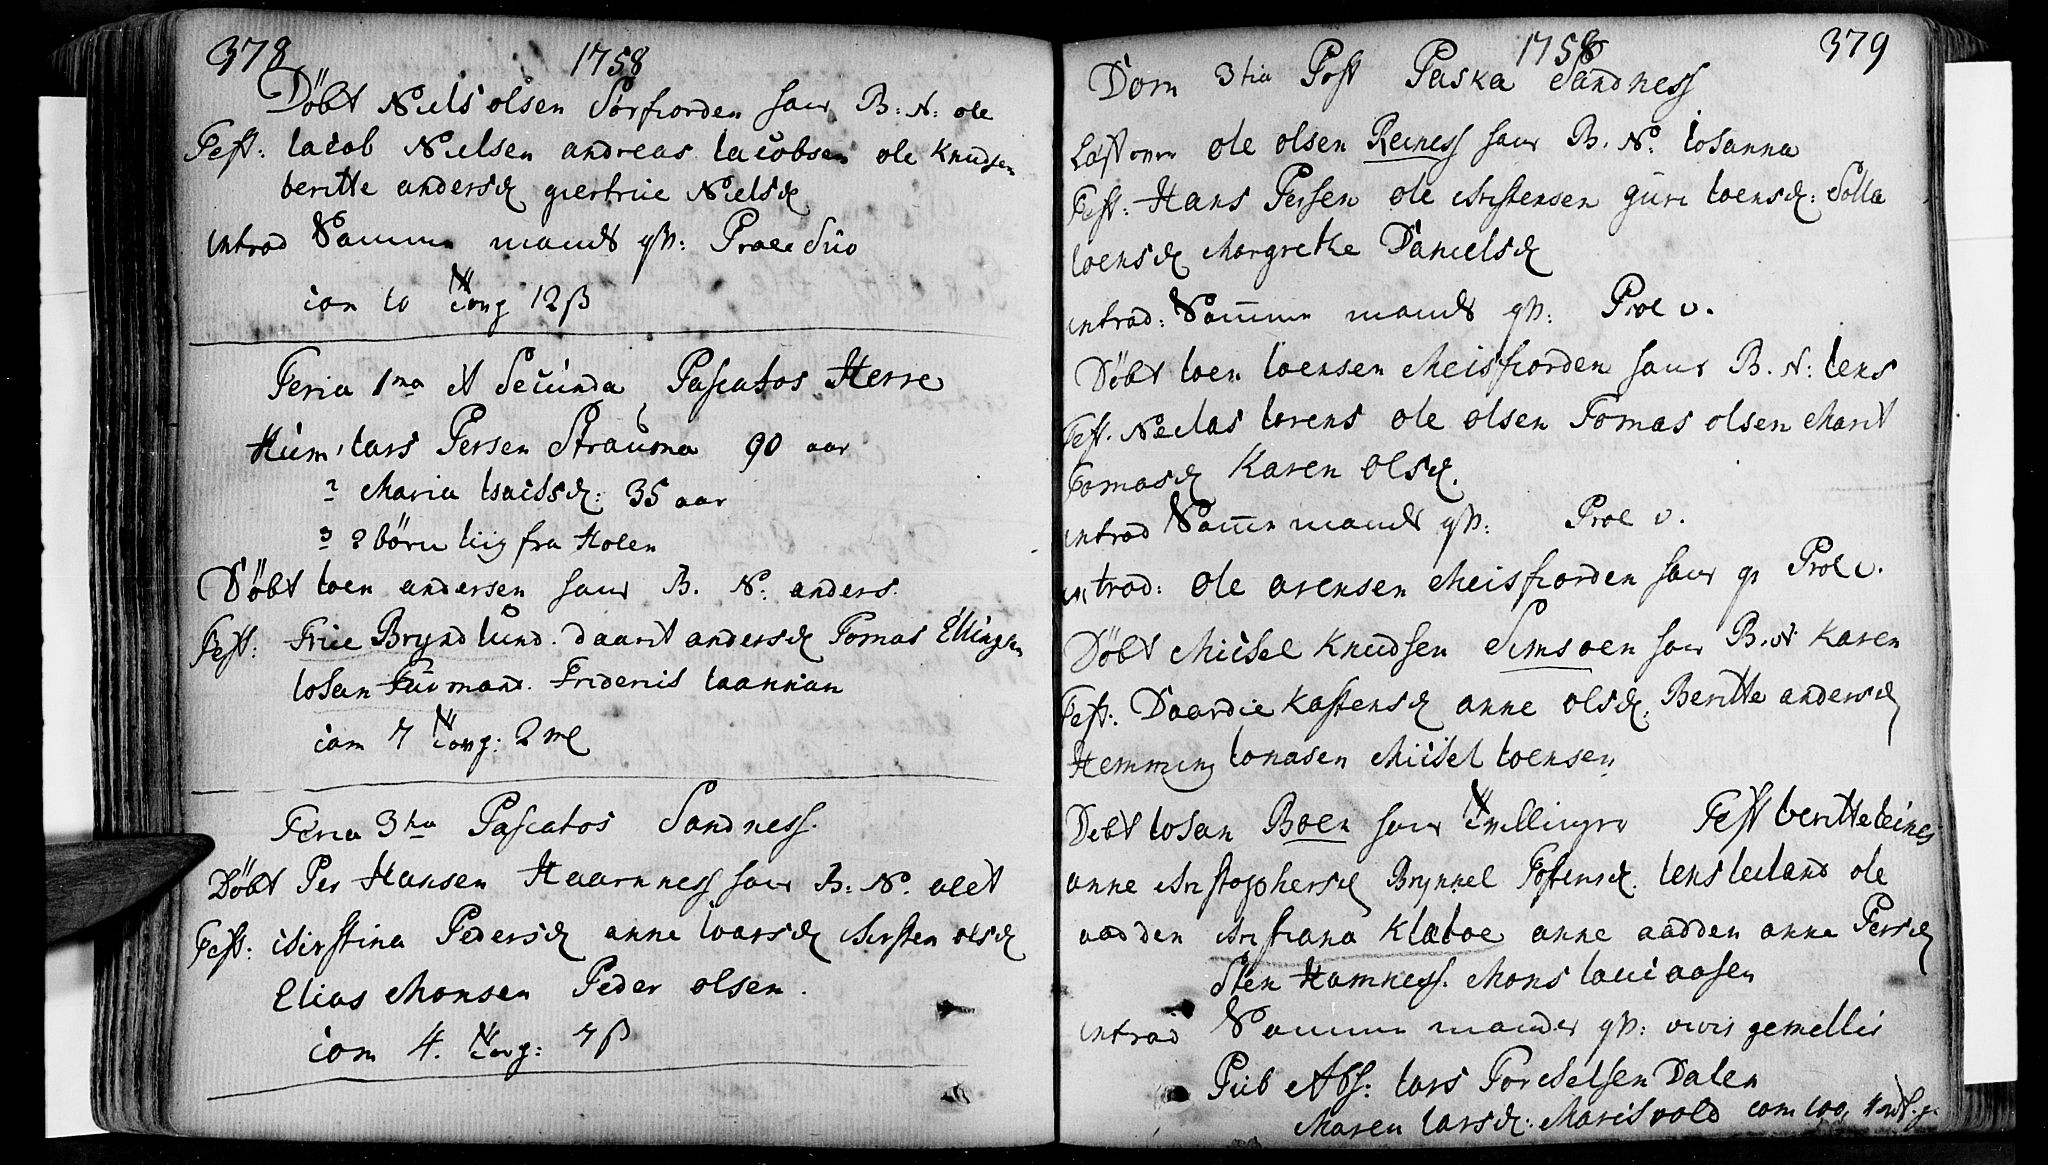 378 1758
Döbt Niels olsen Sörfiorden haus B: N: ole
Test: Iacob Nielsen andreas Iacobsen ole Knudsen
beritte andersd giertrue Nielsd
introd Samme mands q: Prole Suo
com 10 12 ß
Feria 1ma et Secunda Pascatos Herre
Hum: lars Persen Strauma 90 aar
2 Maria Isacsd: 35 aar
3 2 börn liig fra Holen
Döbt Ioen andersen haus B. N: anders
Test: Frue Brynd lund. daarit andersd Tomas Ellingsen
Iosan Fuðmand. Friderics Iaannian
com 7 2 m
Feria 3tia Pascatos Sandness.
Döbt Per Hansen Haarnness haus B: N. alet
Test: Kirstina Pedersd anne Ivarsd Kirsten olsd
Elias Monsen Peder olsen.
com 4. 7 ß
1758 379
Dom 3tia Post Paska Sandness
ole olsen Reiness haus B. N. Iosanna
Test: Hans Persen ole Kristensen guri Ioensd: Solla
Ioensd Margrethe Danielsd
introd: Samme mands q: Prole v.
Döbt Ioen Ioensen Meisfiorden haus B. N: Iens
Test. Neclas Lorens ole olsen Tomas olsen Marit
Tomasd Karen olsd.
introd Samme mands q: Prole v.
introd: ole arensen Meisfiorden haus q Prole v.
Döbt Mickel Knudsen Simsoen haus B. N Karen
Test: Daardie Kastensd anne olsd. Beritte andersd
Hemming Ionasen Mickel Ioensen
Debt Iosan Boen haus Tvillinger Test beritte
anne Kristophersd Brynnel Tostensd. Iens leeland ole
aadden Kristiana Klæboe anne aadden anne Persd
Sten Hamness. Mons
introd Samme mandes q: vivis gemellis
Pub Abs: lars Toreselsen Dalen
Maren larsd: Marisvold com 100